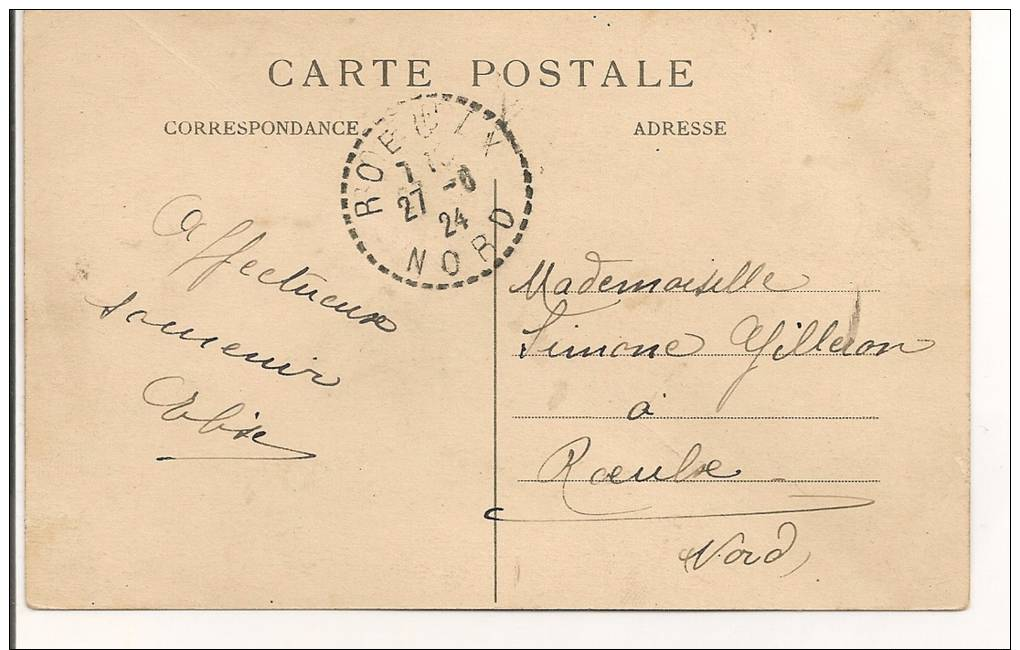 CARTE POSTALE
CORRESPONDANCE
ADRESSE
ROEULX
27 -6
24
NORD
Affectueux
souvenir
Mademoiselle
Simone Gilleron
à
Rœulx
(Nord)